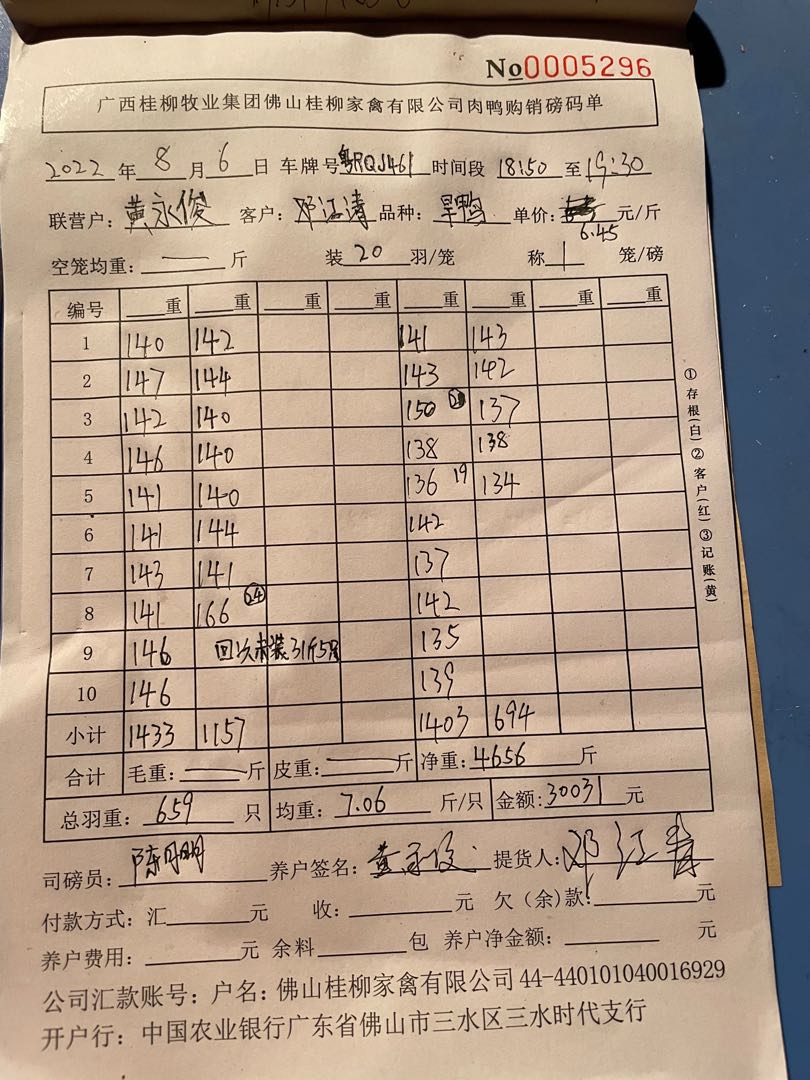 No0005296
广西桂柳牧业集团佛山桂柳家禽有限公司肉鸭购销磅码单
2022年8月6日 车牌号粤RQJ461 时间段 18:50 至 19:30
联营户: 黄永俊 客户: 邓江涛 品种: 旱鸭 单价: 6.45 元/斤
空笼均重: — 斤 装 20 羽/笼 称 1 笼/磅
编号 重 重 重 重 重 重 重 重
1 140 142 141 143
2 147 144 143 142
3 142 140 150 137
4 146 140 138 138
5 141 140 136 19 134
6 141 144 142
7 143 141 137
8 141 166 24 142
9 146 135
10 146 139
小计 1433 1157 1403 694
合计 毛重: — 斤 皮重: — 斤 净重: 4656 斤
总羽重: 659 只 均重: 7.06 斤/只 金额: 30031 元
司磅员: 陈明 养户签名: 黄永俊 提货人: 邓江涛
付款方式: 汇 元 收: 元 欠(余)款: 元
养户费用: 元 余料 包 养户净金额: 元
公司汇款账号: 户名: 佛山桂柳家禽有限公司 44-440101040016929
开户行: 中国农业银行广东省佛山市三水区三水时代支行
①存根(白)②客户(红)③记账(黄)